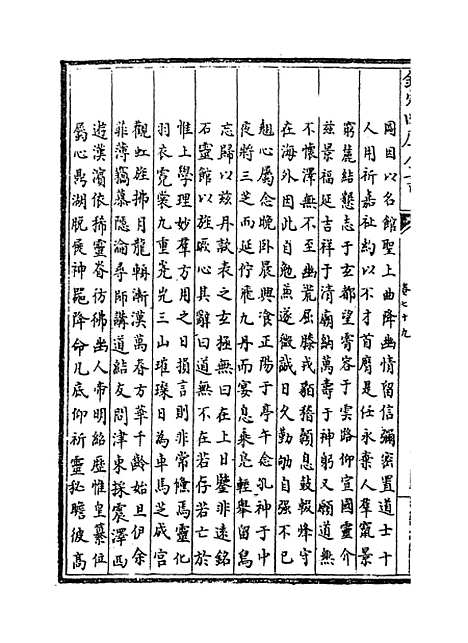 欽定四庫全書
卷七十九
岡因以名館聖上曲降幽情留信彌密置道士十
人用祈嘉祉約以不才首膺是任永棄人羣竄景
窮麓結懇志于玄都望霄容于雲路仰宣國靈介
茲景福延吉祥于清廟納萬壽于神躬又願道無
不懷澤無不至幽荒屈膝戎貊稽顙息鼓輟烽守
在海外因此自勉兼遂微誠日久勤劬自强不已
翹心屬念晚卧晨興飡正陽于亭午念孔神于中
夜將三芝而延佇飛九丹而宴息乘鳧輕舉留舄
忘歸以茲丹款表之玄極無曰在上日鑒非遠銘
石靈館以旌厥心其辭曰道無不在若存若亡於
惟上學理妙羣方用之日損言則非常儵焉靈化
羽衣霓裳九重嵬嵬三山璀璨日為車馬芝成宮
觀虹旌拂月龍輈漸漢萬春方華千齡始旦伊余
菲薄竊慕隱淪尋師講道結友問津東採震澤西
遊漢濱依稀靈眷彷彿幽人帝明紹歷惟皇纂位
屬心鼎湖脫屣神器降命凡底仰祈靈祕瞻彼高